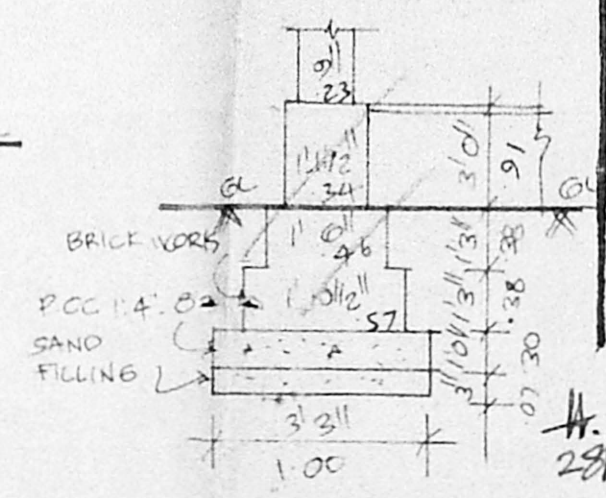 9"
.23
1'1 1/2"
.34
3'0"
.91
GL
GL
BRICK WORK
1' 6"
.46
1'3"
.38
1' 10 1/2"
.57
1'3"
.38
P.CC 1:4:8
SAND
FILLING
1'0"
.30
3"
.07
3'3"
1.00
28